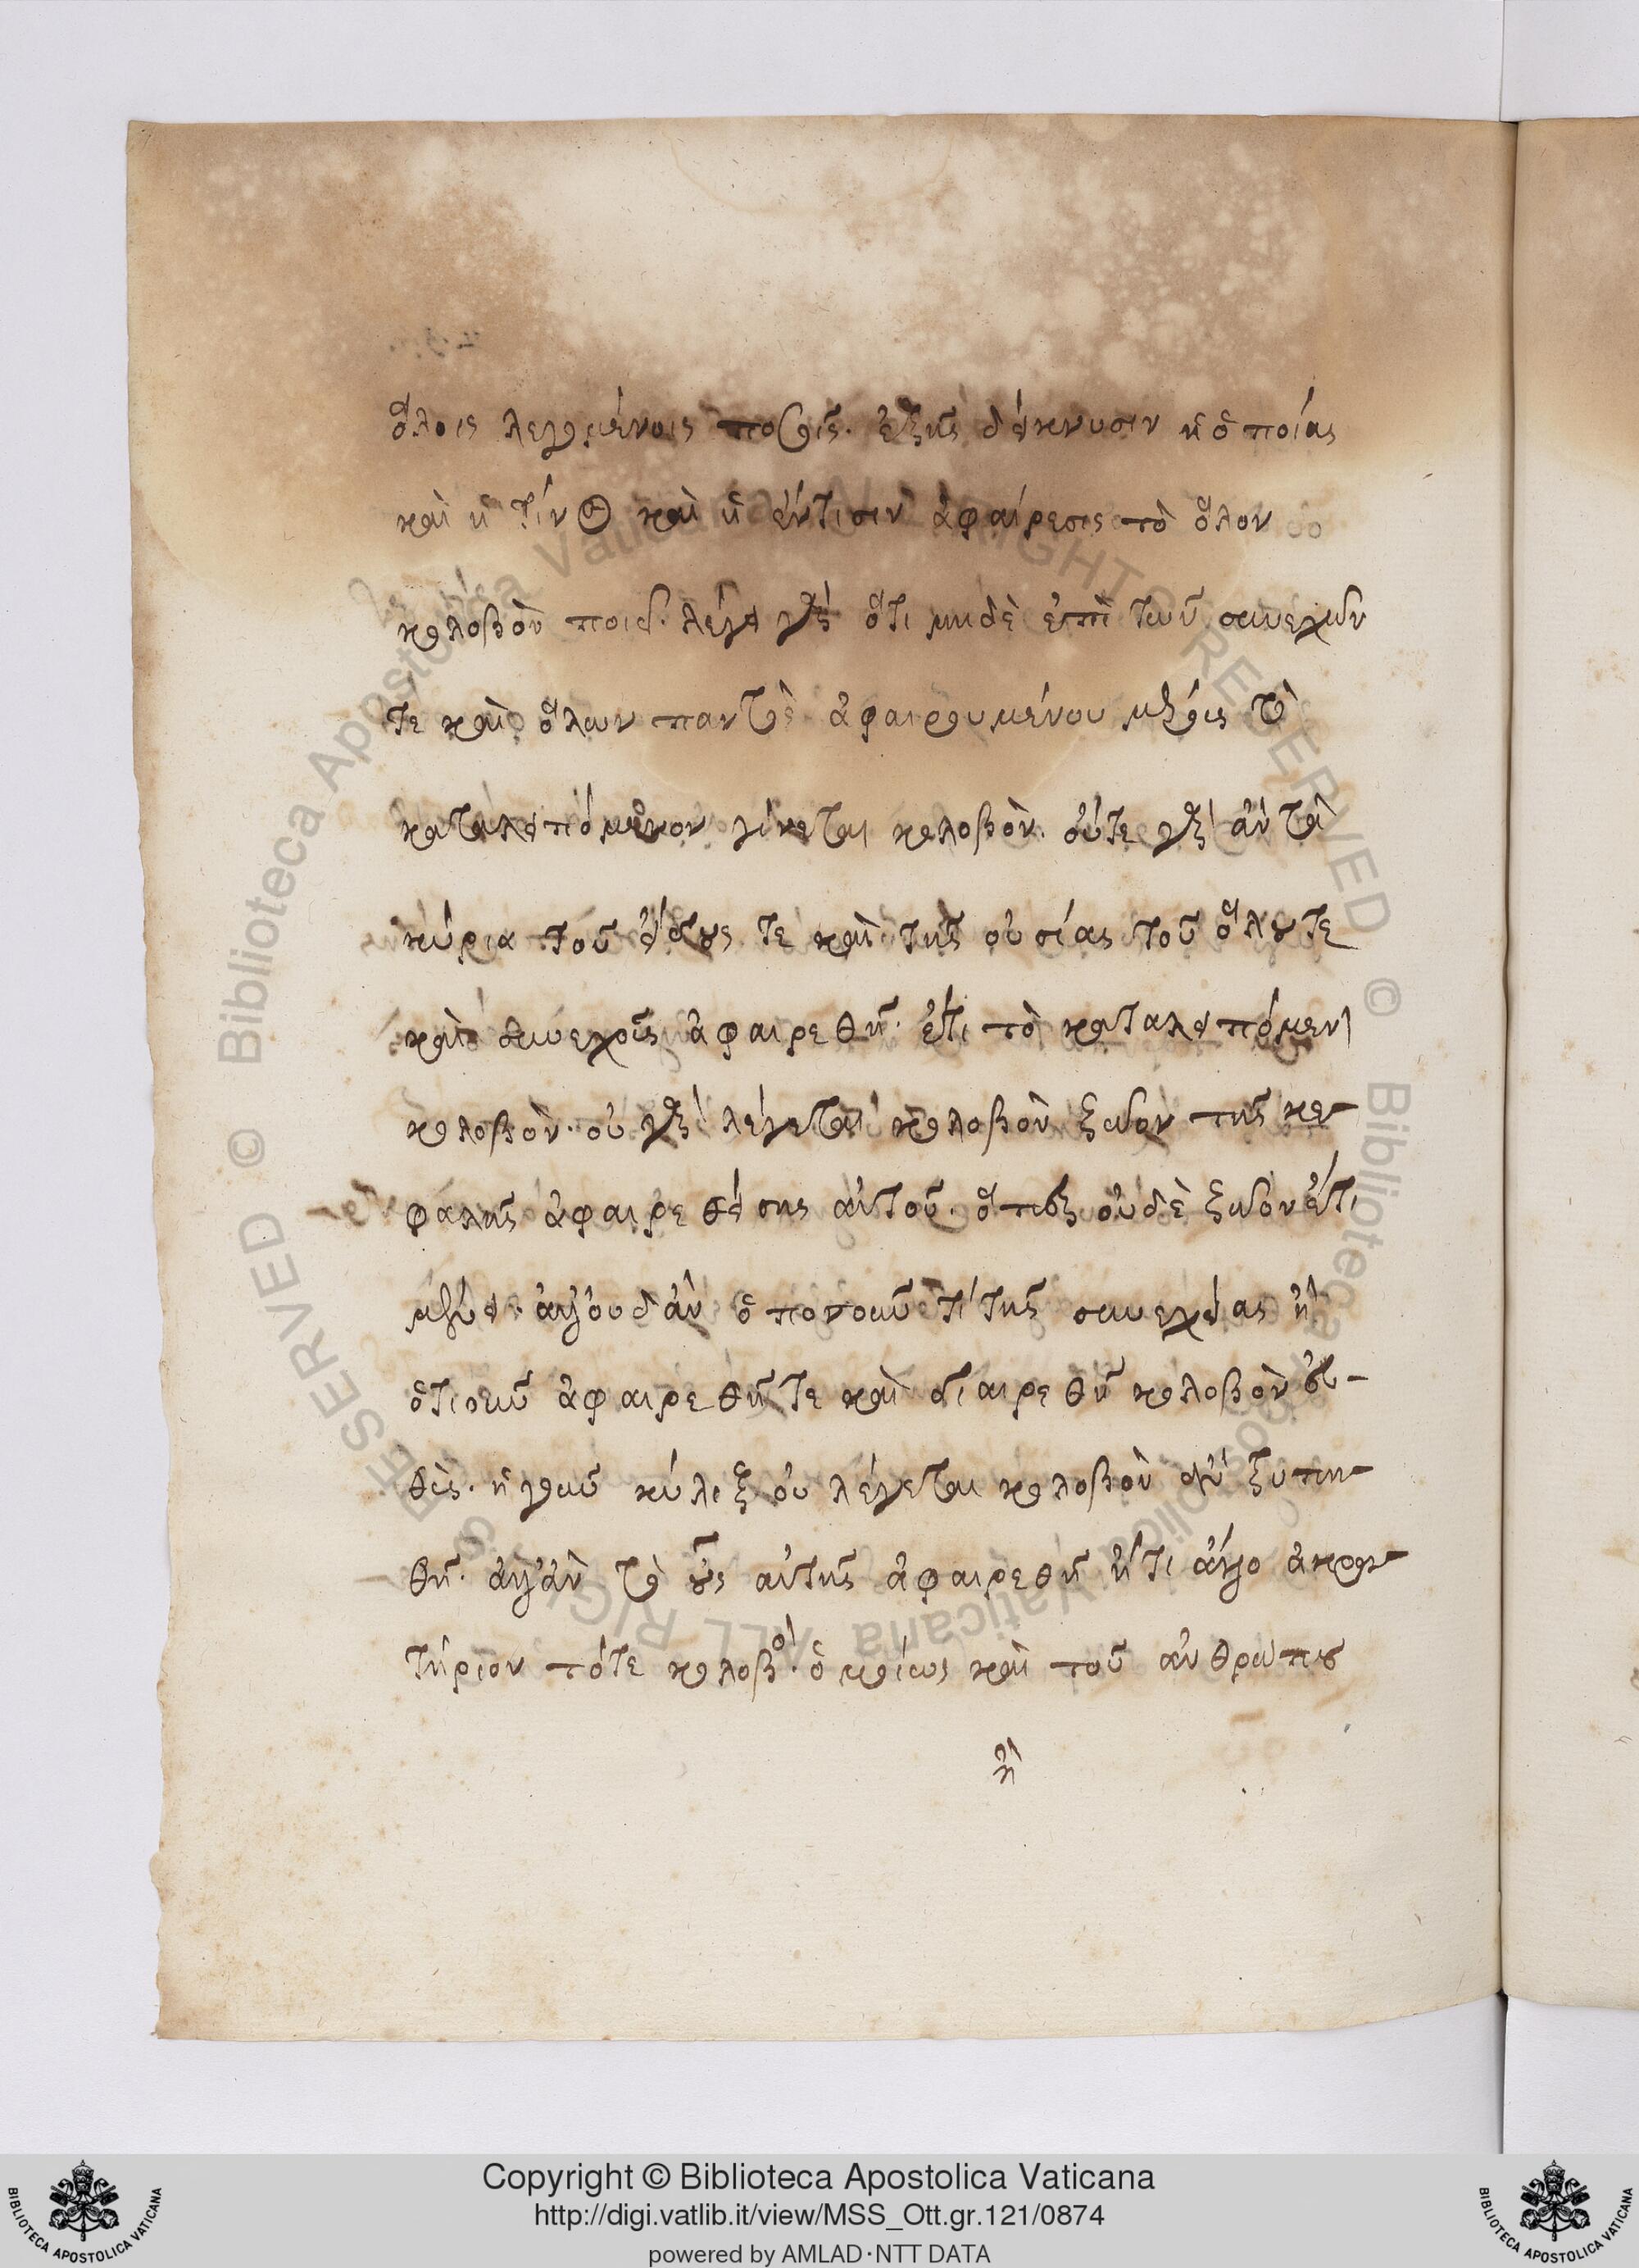 ὅλοις λεγομένοις ποσοῖς. ἑξῆς δείκνυσιν ἡ ὁποίας
καὶ ἡ τίνος καὶ ἡ ἔντισιν ἀφαίρεσις τὸ ὅλον
κολοβὸν ποιεῖ. λέγει γὰρ ὅτι μηδὲ ἐπὶ τῶν συνεχῶν
τε καὶ ὅλων παντὸς ἀφαιρουμένου μέρους τὸ
καταλειπόμενον γίνεται κολοβὸν. οὔτε γὰρ ἂν τὰ
κύρια τοῦ εἴδους τε καὶ τῆς οὐσίας τοῦ ὅλου τε
καὶ συνεχοῦς ἀφαιρεθῆ. ἔτι τὸ καταλειπόμενον
κολοβὸν. οὐ γὰρ λέγεται κολοβὸν ζῶον τῆς κε-
φαλῆς ἀφαιρεθείσης αὐτοῦ. ὅπερ οὐδὲ ζῶον ἔτι
μένει. ἀλλ' οὐδ' ἂν ὁποιονοῦν τι τῆς συνεχείας ἢ
ὁτιοῦν ἀφαιρεθῆ τε καὶ διαιρεθῆ κολοβὸν εὐ-
θὺς. ἡ γοῦν κύλιξ οὐ λέγεται κολοβὸν ἂν τρυπη-
θῆ. ἀλλ' ἂν τὸ οὖς αὐτῆς ἀφαιρεθῆ ἤ τι ἄλλο ἀκρω-
τήριον τότε κολοβὸν. ὁμοίως καὶ τοῦ ἀνθρώπου
ἢ
Copyright © Biblioteca Apostolica Vaticana
http://digi.vatlib.it/view/MSS_Ott.gr.121/0874
powered by AMLAD·NTT DATA